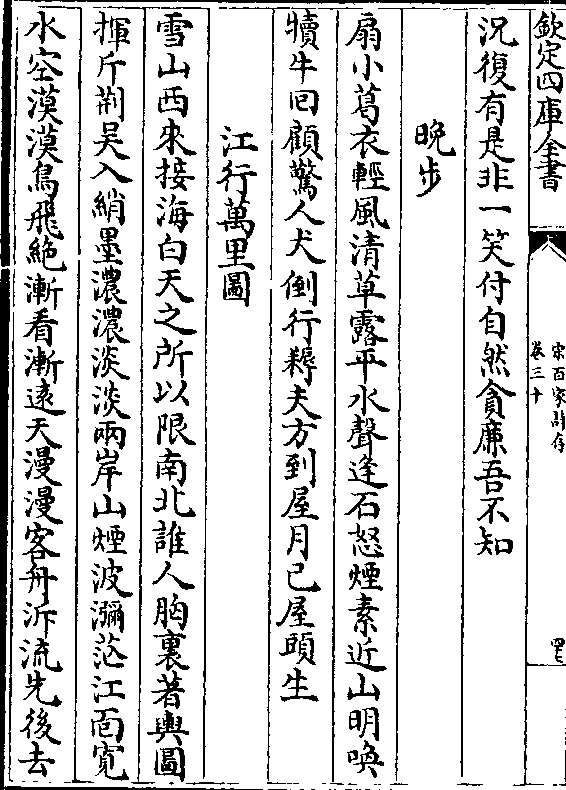 欽定四庫全書
宋百家詩存
卷三十
況復有是非一笑付自然貪廉吾不知
晚步
扇小葛衣輕風清草露平水聲逢石怒煙素近山明喚
犢牛回顧驚人犬倒行耨夫方到屋月已屋頭生
江行萬里圖
雪山西來接海白天之所以限南北誰人胸裏著輿圖
揮斤荆吴入綃墨濃濃淡淡兩岸山煙波瀰茫江面寛
水空漠漠鳥飛絶漸看漸遠天漫漫客舟泝流先後去